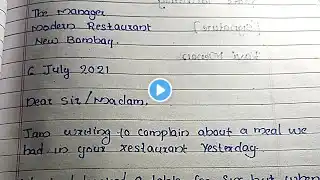 The Manager
Modern Restaurant
New Bombay.
6 July 2021
Dear Sir/Madam,
Iam writing to complain about a meal we
had in your restaurant yesterday.
a table for six but when